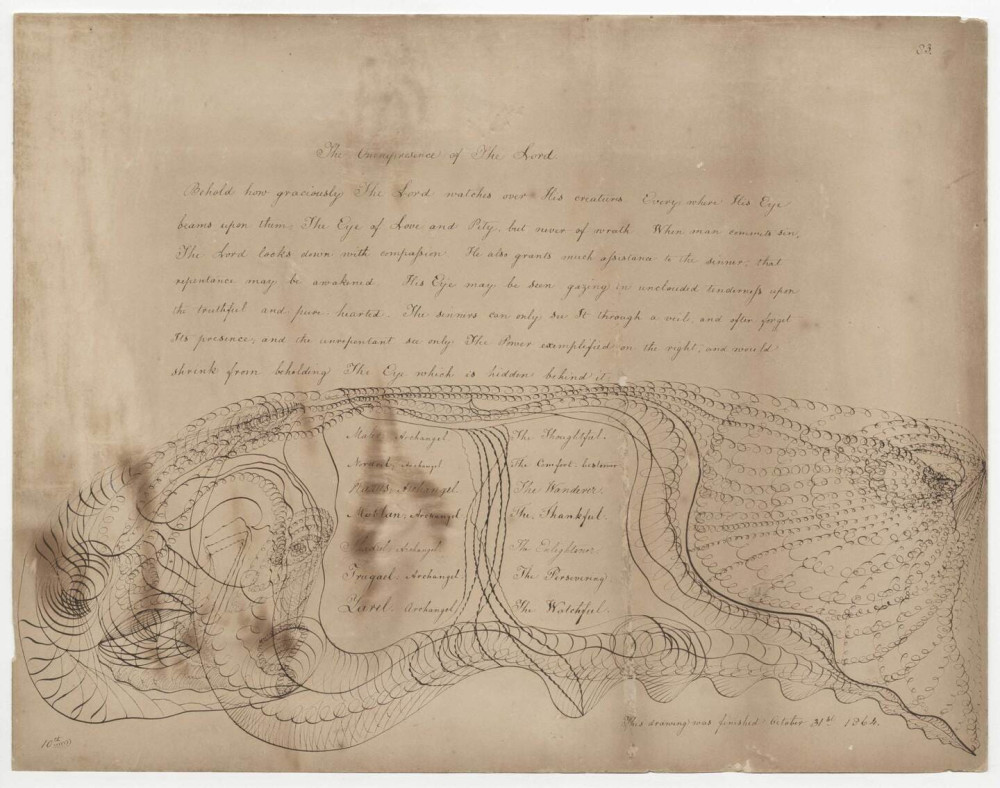 33.
The Omnipresence of The Lord
Behold how graciously The Lord watches over His creatures. Every where His Eye
beams upon them, The Eye of Love and Pity, but never of wrath. When man commits sin,
The Lord looks down with compassion. He also grants much assistance to the sinner, that
repentance may be awakened. His Eye may be seen gazing in unclouded tenderness upon
the truthful and pure hearted. The sinners can only see It through a veil, and often forget
Its presence, and the unrepentant see only The Power exemplified on the right, and would
shrink from beholding The Eye which is hidden behind it.
Archangel The Thoughtful.
Archangel The Comfort
Archangel. The Wanderer.
Archangel The Thankful.
Archangel The Enlightener.
Archangel The Persevering
Archangel, The Watchful.
This drawing was finished October 31st 1864.
10th